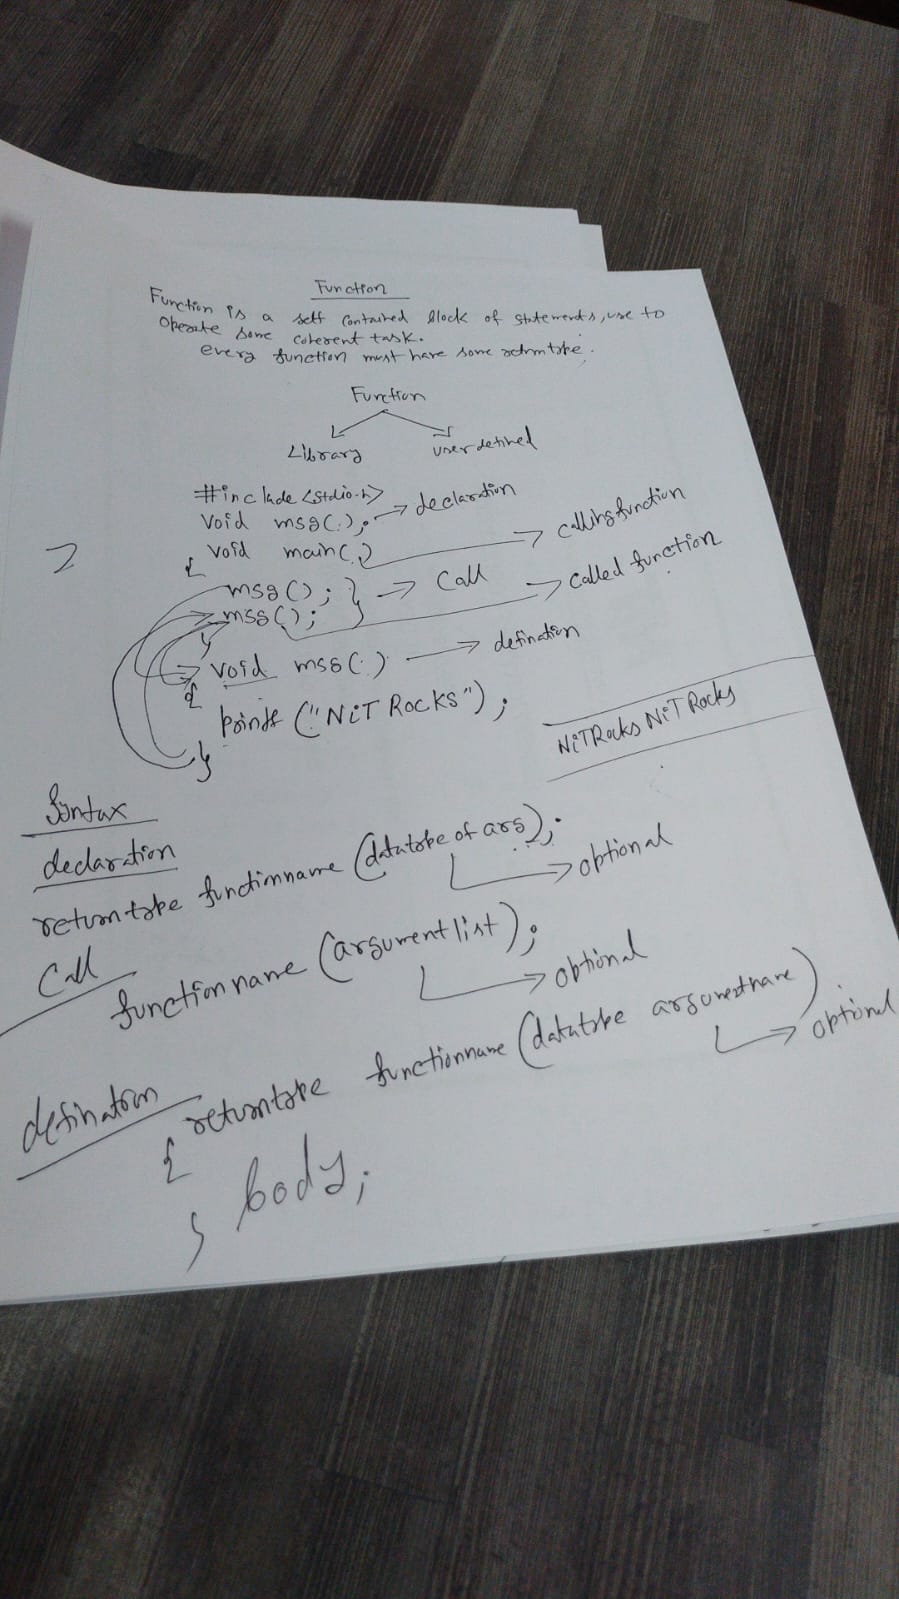 Function
Function is a self contained block of statements, use to
operate some coherent task.
every function must have some return type.
Function
Library
user defined
#include <stdio.h>
void msg(); → declaration
void main() → calling function
{
msg(); } → Call
msg(); → called function
}
void msg() → defination
{
printf ("NiT Rocks");
}
NiTRocks NiT Rocks
Syntax
declaration
returntype functionname (datatype of arg);
→ optional
Call
functionname (argument list);
→ optional
defination
returntype functionname (datatype argumentname)
→ optional
{
body;
}